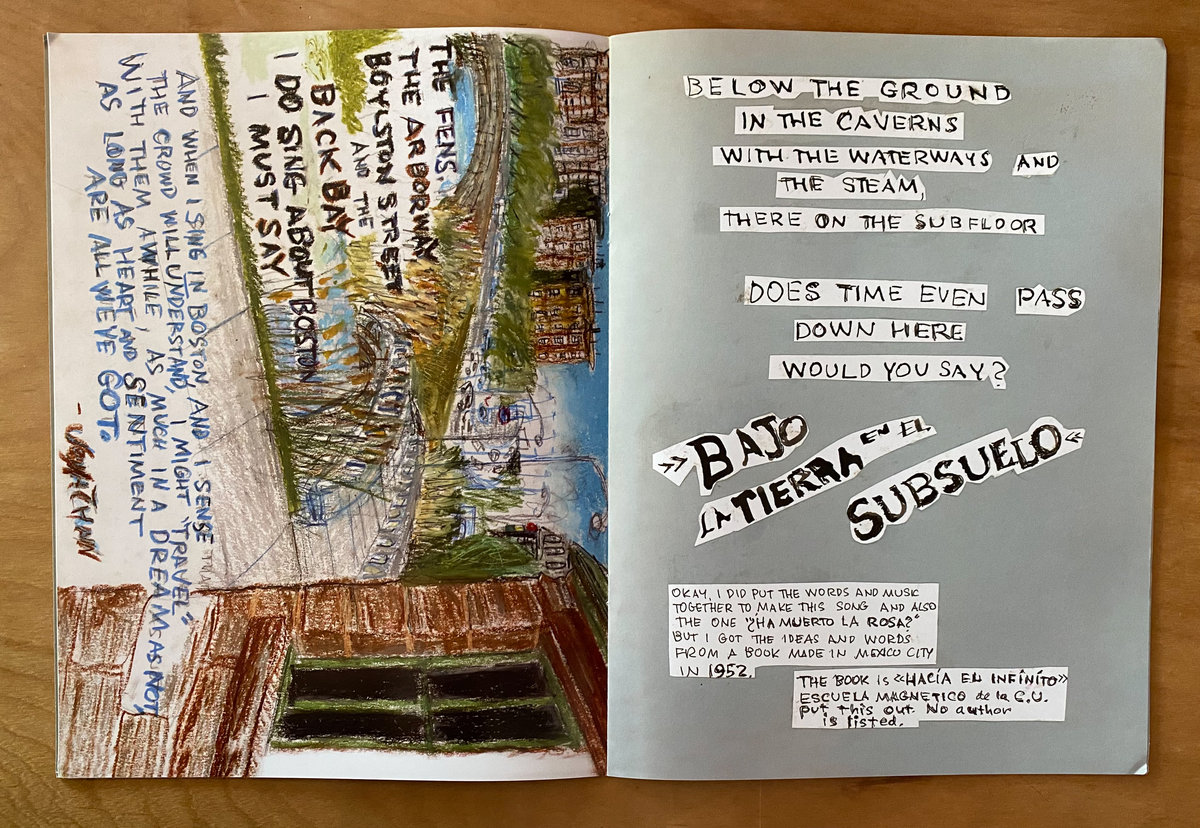 THE FENS,
THE ARBORWAY,
BOYLSTON STREET
AND THE
BACK BAY
I DO SING ABOUT BOSTON
I MUST SAY
AND WHEN I SING IN BOSTON, AND I SENSE THAT
THE CROWD WILL UNDERSTAND, I MIGHT "TRAVEL"
WITH THEM AWHILE, AS MUCH IN A DREAM AS NOT,
AS LONG AS HEART AND SENTIMENT
ARE ALL WE'VE GOT.
BELOW THE GROUND
IN THE CAVERNS
WITH THE WATERWAYS AND
THE STEAM,
THERE ON THE SUBFLOOR
DOES TIME EVEN PASS
DOWN HERE
WOULD YOU SAY?
»BAJO
LA TIERRA EN EL
SUBSUELO«
OKAY, I DID PUT THE WORDS AND MUSIC
TOGETHER TO MAKE THIS SONG AND ALSO
THE ONE "¿HA MUERTO LA ROSA?"
BUT I GOT THE IDEAS AND WORDS
FROM A BOOK MADE IN MEXICO CITY
IN 1952.
THE BOOK IS «HACÍA EN INFÍNÍTO»
ESCUELA MAGNETICO de la C.U.
put this out. No author
is listed.